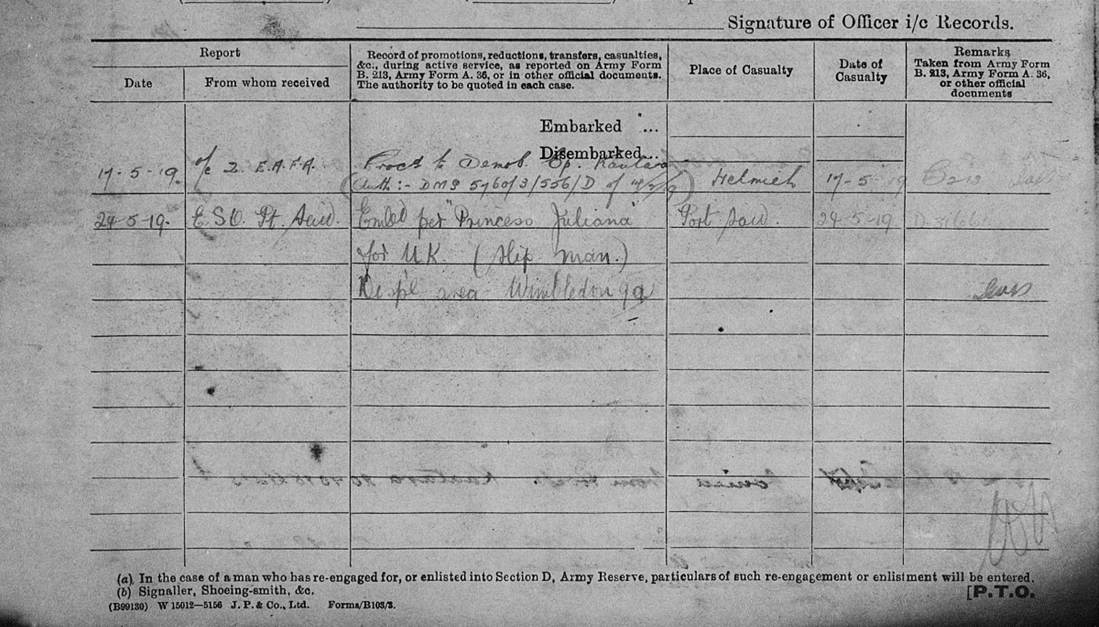 Signature of Officer i/c Records.
Report
Date
From whom received
Record of promotions, reductions, transfers, casualties,
&c., during active service, as reported on Army Form
B. 213, Army Form A. 36, or in other official documents.
The authority to be quoted in each case.
Place of Casualty
Date of
Casualty
Remarks
Taken from Army Form
B. 213, Army Form A. 36,
or other official
documents
Embarked ...
Disembarked...
17-5-19. E.A.F.A. Proc'd to Demob. Kantara Helmieh 17-5-19 B213
(Auth:- DMS 5460/3/556/D of
24-5-19. E.S.O. Pt. Said. Emb'd per "Princess Juliana" Port Said. 24-5-19
for U.K. (Slip man.)
area Wimbledon
(a) In the case of a man who has re-engaged for, or enlisted into Section D, Army Reserve, particulars of such re-engagement or enlistment will be entered.
(b) Signaller, Shoeing-smith, &c.
(B99130) W 15012—5156 J. P. & Co., Ltd. Forms/B103/3.
[P.T.O.